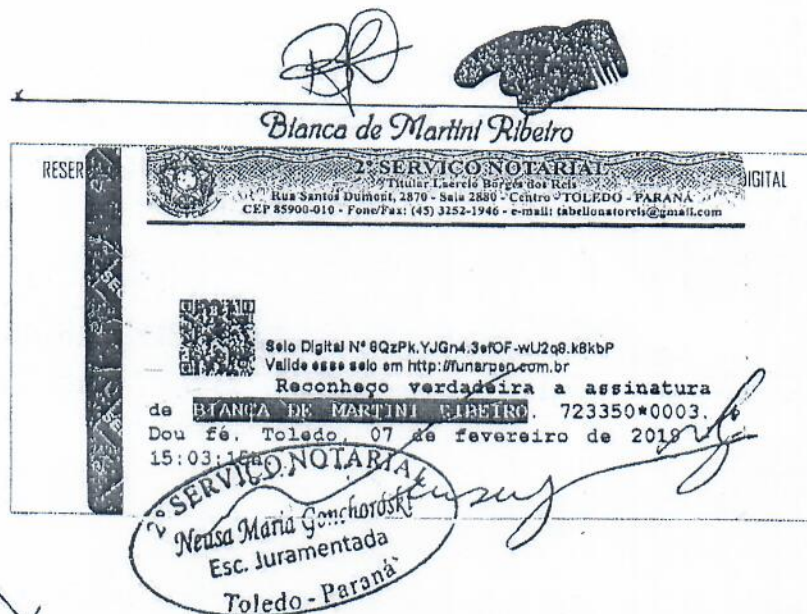 Bianca de Martini Ribeiro
RESER
IGITAL
2º SERVIÇO NOTARIAL
Titular Laercio Borges dos Reis
Rua Santos Dumont, 2870 - Sala 2880 - Centro - TOLEDO - PARANÁ
CEP 85900-010 - Fone/Fax: (45) 3252-1946 - e-mail: tabelionatoreis@gmail.com
Selo Digital Nº 6QzPk.YJGn4.3efOF-wU2q8.kBkbP
Valide esse selo em http://funarpen.com.br
Reconheço verdadeira a assinatura
de BIANCA DE MARTINI RIBEIRO. 723350*0003.
Dou fé. Toledo, 07 de fevereiro de 2019
15:03:15h
2º SERVIÇO NOTARIAL
Neusa Maria Gonchoroski
Esc. Juramentada
Toledo - Paraná